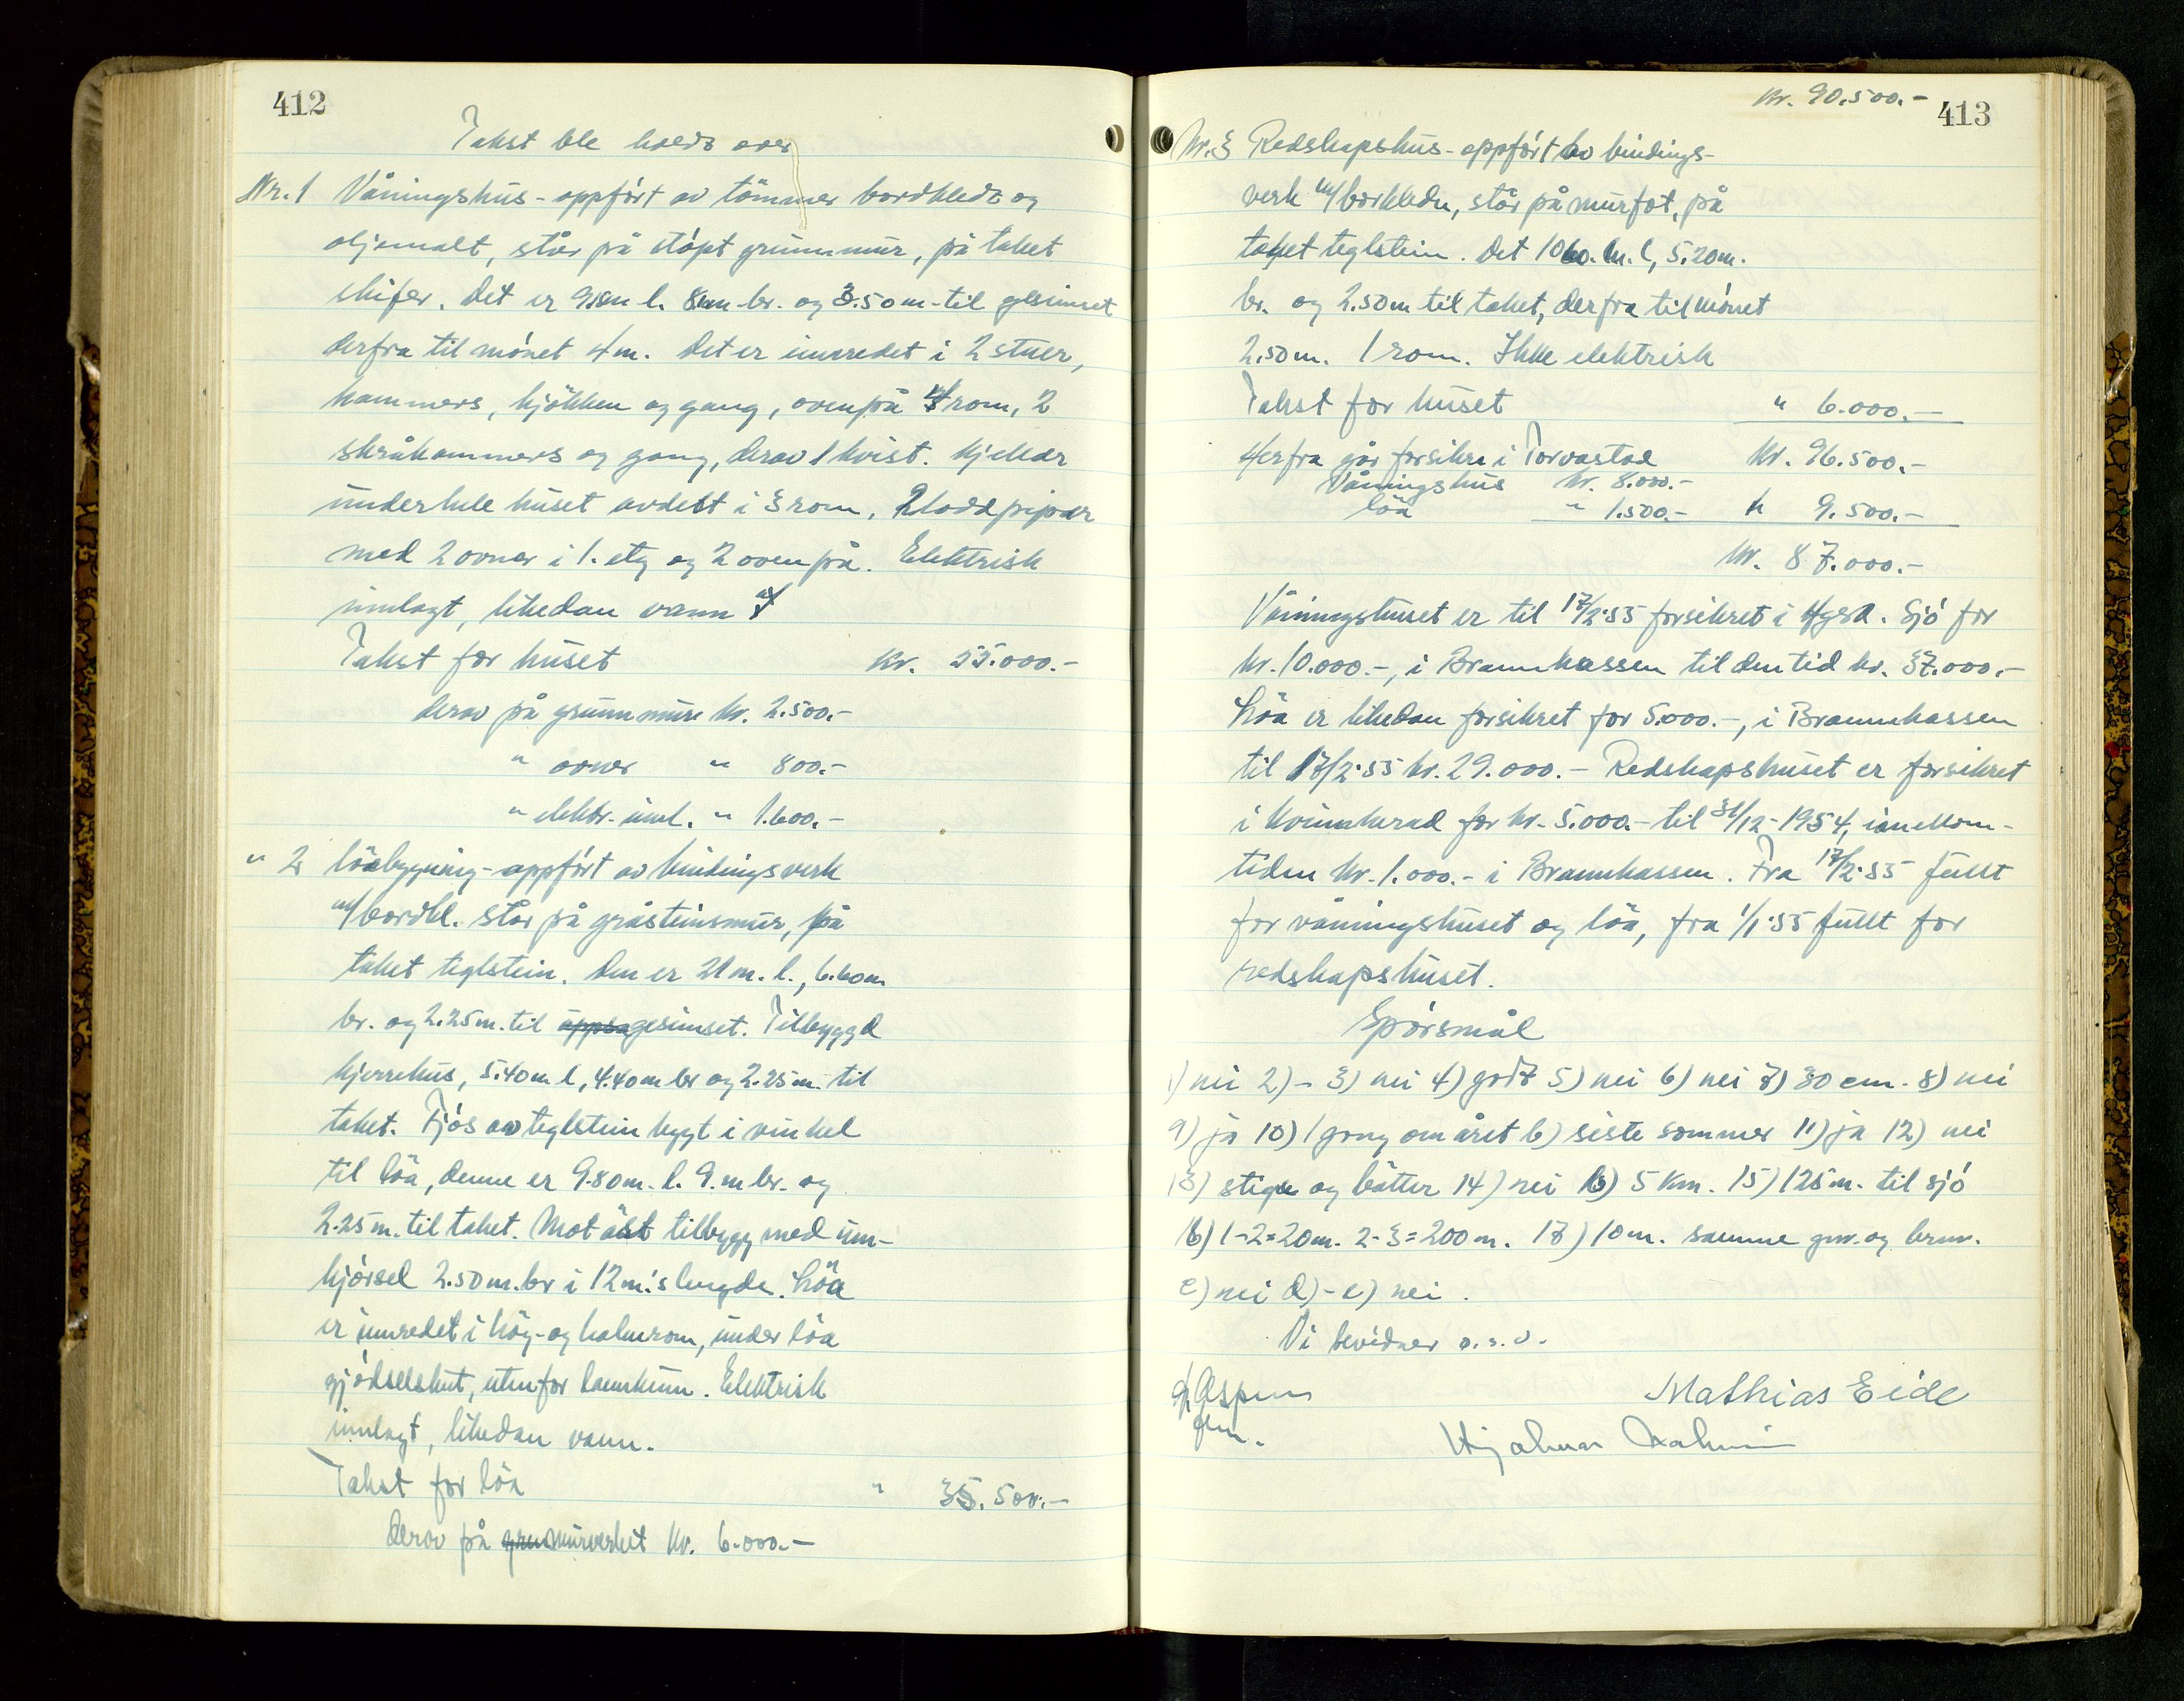 412
Takst ble holdt over
Nr. 1 Våningshus - oppført av tømmer bordkledt og
oljemalt, står på støpt grunnmur, på taket
skifer. Det er 9.80m l. 8m br. og 3.50m til gesimset
derfra til mønet 4m. Det er innredet i 2 stuer,
kammers, kjøkken og gang, ovenpå 4 rom, 2
skråkammers og gang, derav 1 kvist. Kjeller
under hele huset avdelt i 3 rom. 2 loddpipar
med 2 ovner i 1. etg og 2 ovenpå. Elektrisk
innlagt, likedan vann
Takst for huset kr. 55.000.-
derav på grunnmure kr. 2.500.-
" ovner " 800.-
" elektr. innl. " 1.600.-
" 2 Löabygning - oppført av bindingsverk
m/bordkl. står på gråsteinsmur, på
taket teglstein. Den er 21m. l., 6.60m
br. og 2.25m. til gesimset. Tilbyggd
kjerrehus, 5.40m l, 4.40m br og 2.25m. til
taket. Fjøs av teglstein bygt i vinkel
til löa, denne er 9.80m. l. 9.m br. og
2.25m. til taket. Mot äst tilbygg med inn-
kjørsel 2.50m. br i 12m.'s lengde. Löa
er innredet i höy- og halmrom, under löa
gjødselskut, utenfor landkum. Elektrisk
innlagt, likedan vann.
Takst for löa " 35.500.-
Derav på murverket kr. 6.000.-
413
kr. 90.500.-
Nr. 3 Redskapshus - oppført av bindings-
verk m/borkledn, står på murfot, på
taket teglstein. Det 10.60. m. l, 5.20m.
br. og 2.50m til taket, derfra til mønet
2.50m. 1 rom. Ikke elektrisk
Takst for huset " 6.000.-
Herfra går forsikra i Torvastad kr. 96.500.-
Våningshus kr. 8.000.-
löa " 1.500.- " 9.500.-
kr. 87.000.-
Våningshuset er til 17/2-55 forsikret i Hgsd. Sjø for
kr. 10.000.-, i Brannkassen til den tid kr. 37.000.-
Löa er likedan forsikret for 5.000.-, i Brannkassen
til 17/2-55 kr. 29.000.- Redskapshuset er forsikret
i Kvinnherad for kr. 5.000.- til 31/12-1954, i mellom-
tiden kr. 1.000.- i Brannkassen. Fra 17/2-55 fullt
for våningshuset og löa, fra 1/1-55 fullt for
redskapshuset.
Spørsmål
1) nei 2) - 3) nei 4) godt 5) nei 6) nei 7) 30 cm. 8) nei
9) ja 10) 1 gong om året b) siste sommer 11) ja 12) nei
13) stige og bøtter 14) nei b) 5 km. 15) 125m. til sjø
16) 1-2=20m. 2-3=200m. 17) 10m. samme gnr. og brnr.
c) nei d) - e) nei.
Vi bevidner o.s.v.
Aspen Mathias Eide
Hjalmar